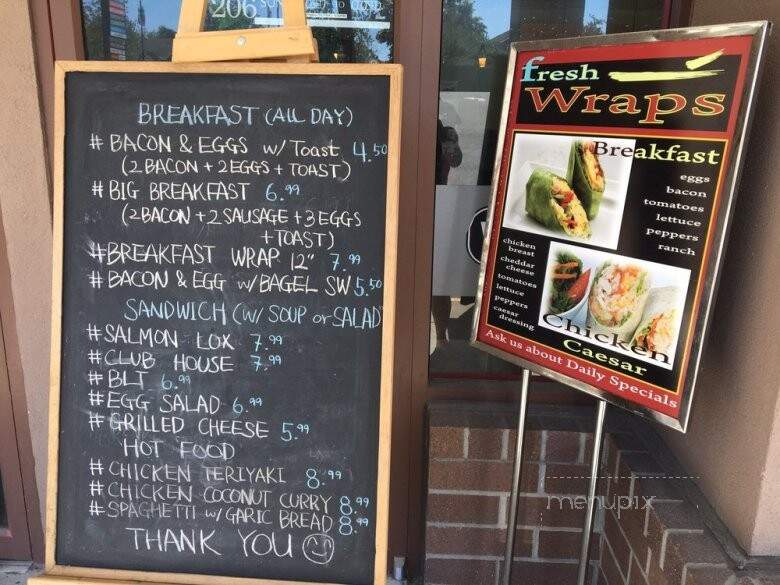 206
BREAKFAST (ALL DAY)
# BACON & EGGS w/ Toast 4.50
(2 BACON + 2 EGGS + TOAST)
# BIG BREAKFAST 6.99
(2 BACON + 2 SAUSAGE + 3 EGGS
+ TOAST)
# BREAKFAST WRAP 12" 7.99
# BACON & EGG w/ BAGEL SW 5.50
SANDWICH (W/ SOUP or SALAD
# SALMON LOX 7.99
# CLUB HOUSE 7.99
# BLT 6.99
# EGG SALAD 6.99
# GRILLED CHEESE 5.99
HOT FOOD
# CHICKEN TERIYAKI 8.99
# CHICKEN COCONUT CURRY 8.99
# SPAGHETTI w/ GARIC BREAD 8.99
THANK YOU
fresh
Wraps
Breakfast
eggs
bacon
tomatoes
lettuce
peppers
ranch
chicken
breast
cheddar
cheese
tomatoes
lettuce
peppers
caesar
dressing
Chicken
Caesar
Ask us about Daily Specials
menupix